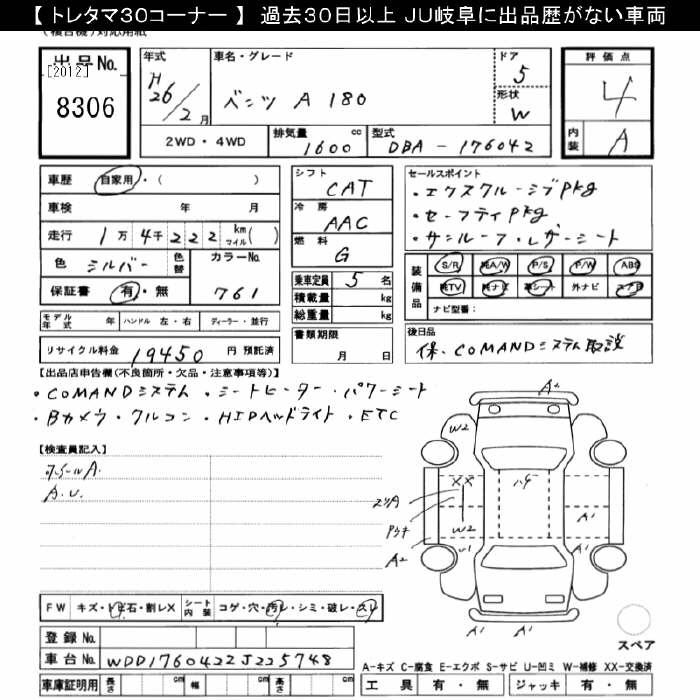 【 トレタマ30コーナー 】 過去30日以上 JU岐阜に出品歴がない車両
(複合機)対応用紙
出品No.
[2012]
8306
年式
H26/2月
車名・グレード
ベンツ A 180
ドア
5
形状
W
2WD・4WD
排気量 1600 cc
型式 DBA-176042
評価点
4
内装 A
車歴 自家用・( )
車検 年 月
走行 1万4千222 km マイル( )
色 シルバー 色替
カラーNo. 761
保証書 有・無
モデル年式 年 ハンドル 左・右 ディーラー・並行
リサイクル料金 19450 円 預託済
シフト CAT
冷房 AAC
燃料 G
乗車定員 5 名
積載量 kg
総重量 kg
書類期限
月 日
セールスポイント
・エクスクルーシブpkg
・セーフティpkg
・サンルーフ・レザーシート
装備品 S/R 純A/W P/S P/W ABS
純TV 純ナビ 革シート 外ナビ エアB
ナビ型番:
後日品
保、COMANDシステム取説
【出品店申告欄(不良箇所・欠品・注意事項等)】
・COMANDシステム・シートヒーター・パワーシート
・Bカメラ・クルコン・HIDヘッドライト・ETC
【検査員記入】
ホイールA.
A.U.
A2
W2
XX
ハゲ
エリA
W2
A2
U1
A1
A1
A1
スペア
FW キズ・トビ石・割レX
シート内装 コゲ・穴・汚レ・シミ・破レ・スレ
登録No.
車台No. WDD1760422J225748
車庫証明用 長さ cm 幅 cm 高さ cm
A-キズ C-腐食 E-エクボ S-サビ U-凹ミ W-補修 XX-交換済
工具 有・無 ジャッキ 有・無